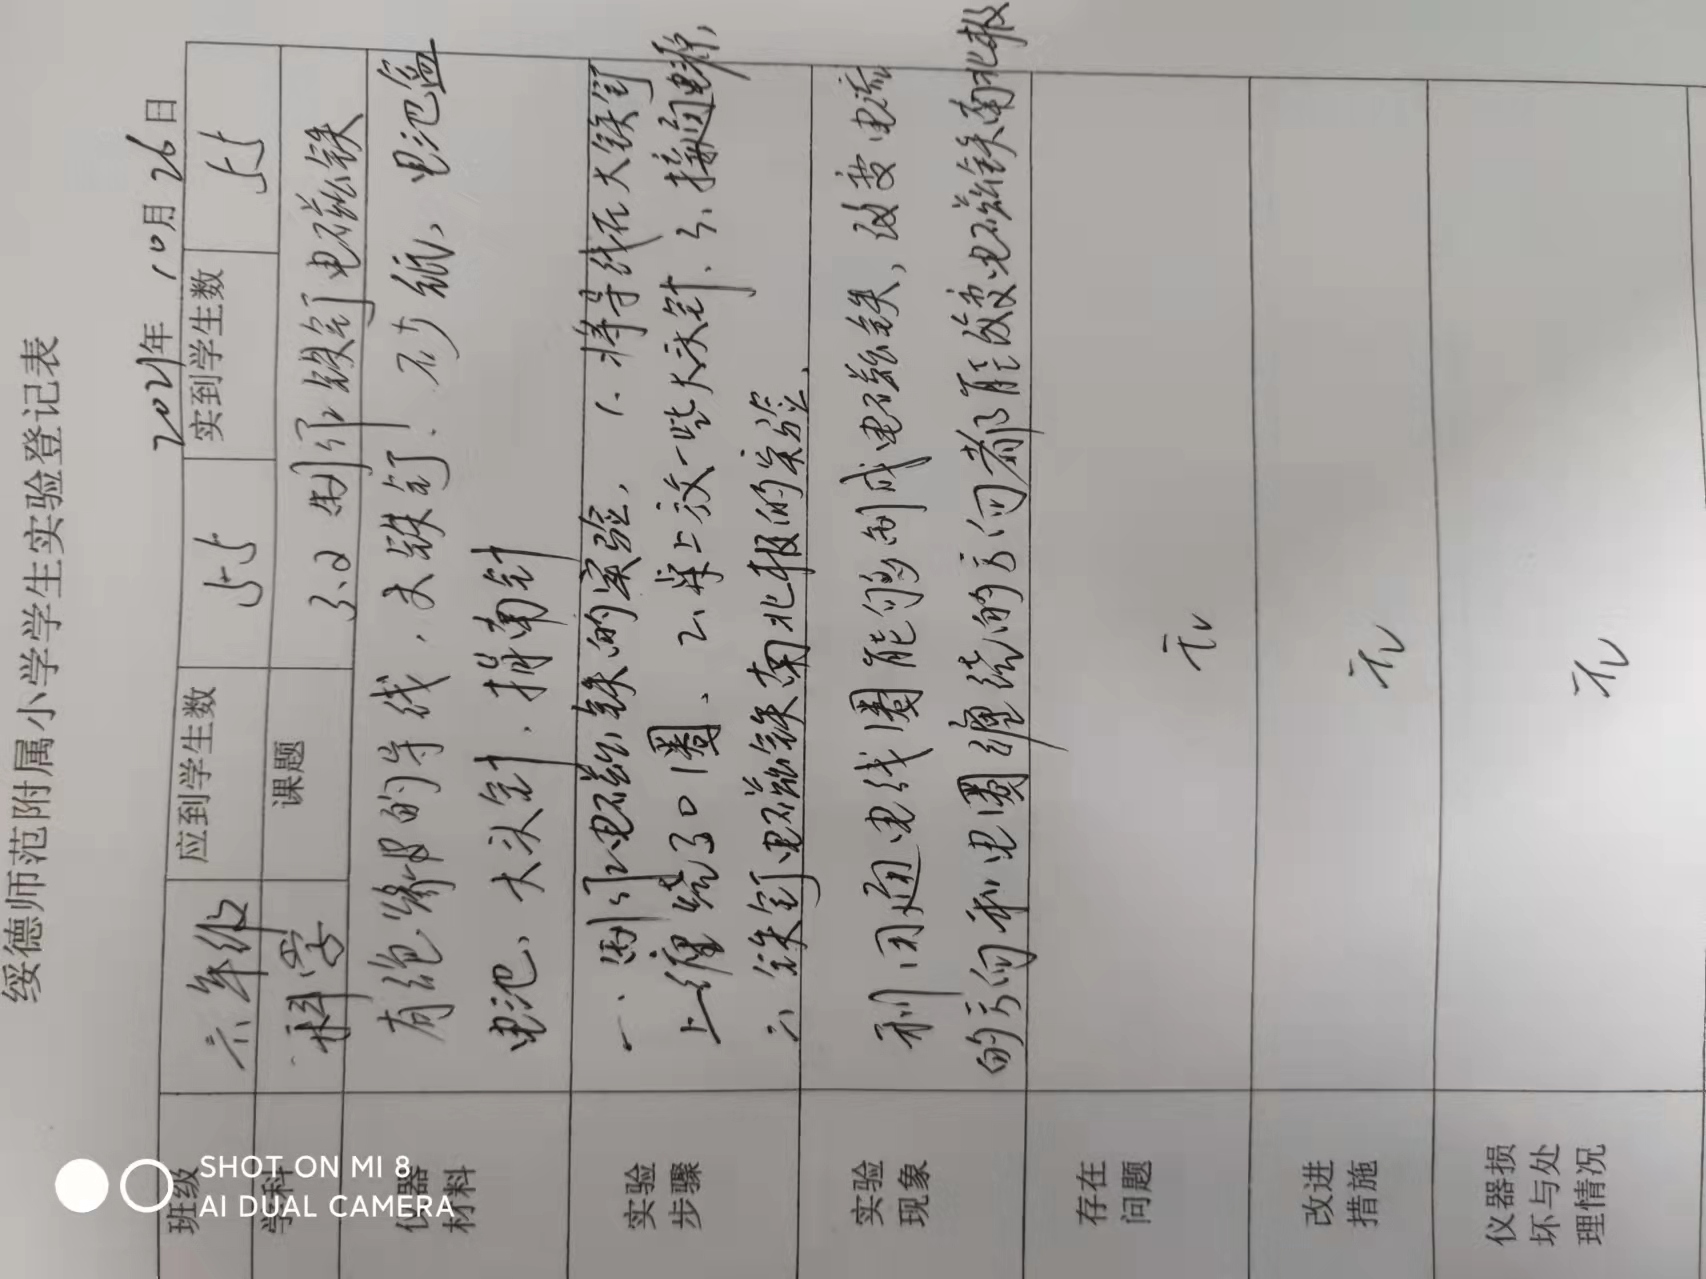 绥德师范附属小学学生实验登记表
2021年 10月 26日
班级 六年级 应到学生数 55 实到学生数 55
学科 科学 课题 3.2 制作铁钉电磁铁
仪器 有绝缘的导线、大铁钉、砂纸、电池盒
材料 电池、大头针、指南针
实验 一、制作电磁铁的实验, 1、将导线在大铁钉
步骤 上缠绕30圈、2、桌上放一些大头针、3、接通电源,
二、铁钉电磁铁南北极的实验、
实验 利用通电线圈能够制成电磁铁、改变电流
现象 的方向和电圈缠绕的方向都能改变电磁铁南北极
存在
问题 无
改进
措施 无
仪器损
坏与处
理情况 无
SHOT ON MI 8
AI DUAL CAMERA